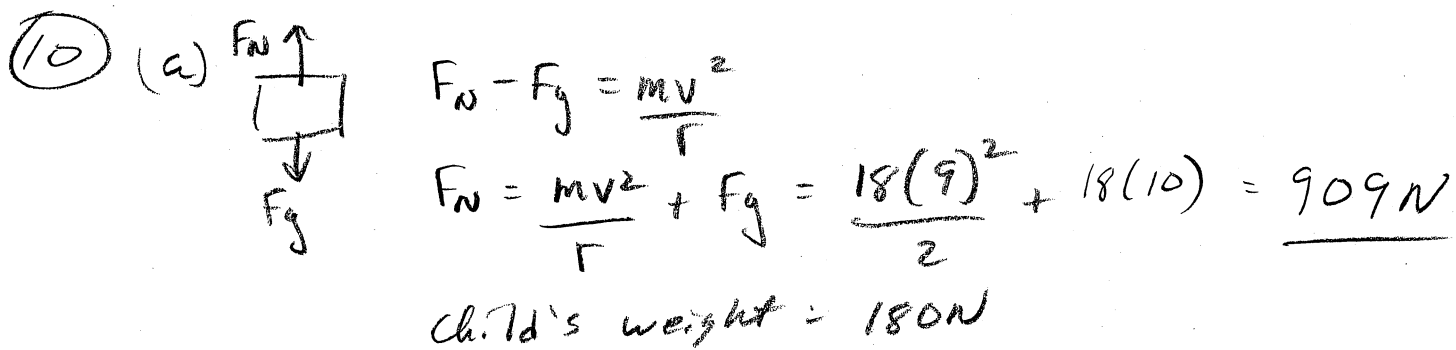 10 (a) FN
FN - Fg = mv²/r
Fg
FN = mv²/r + Fg = 18(9)²/2 + 18(10) = 909N
Child's weight = 180N